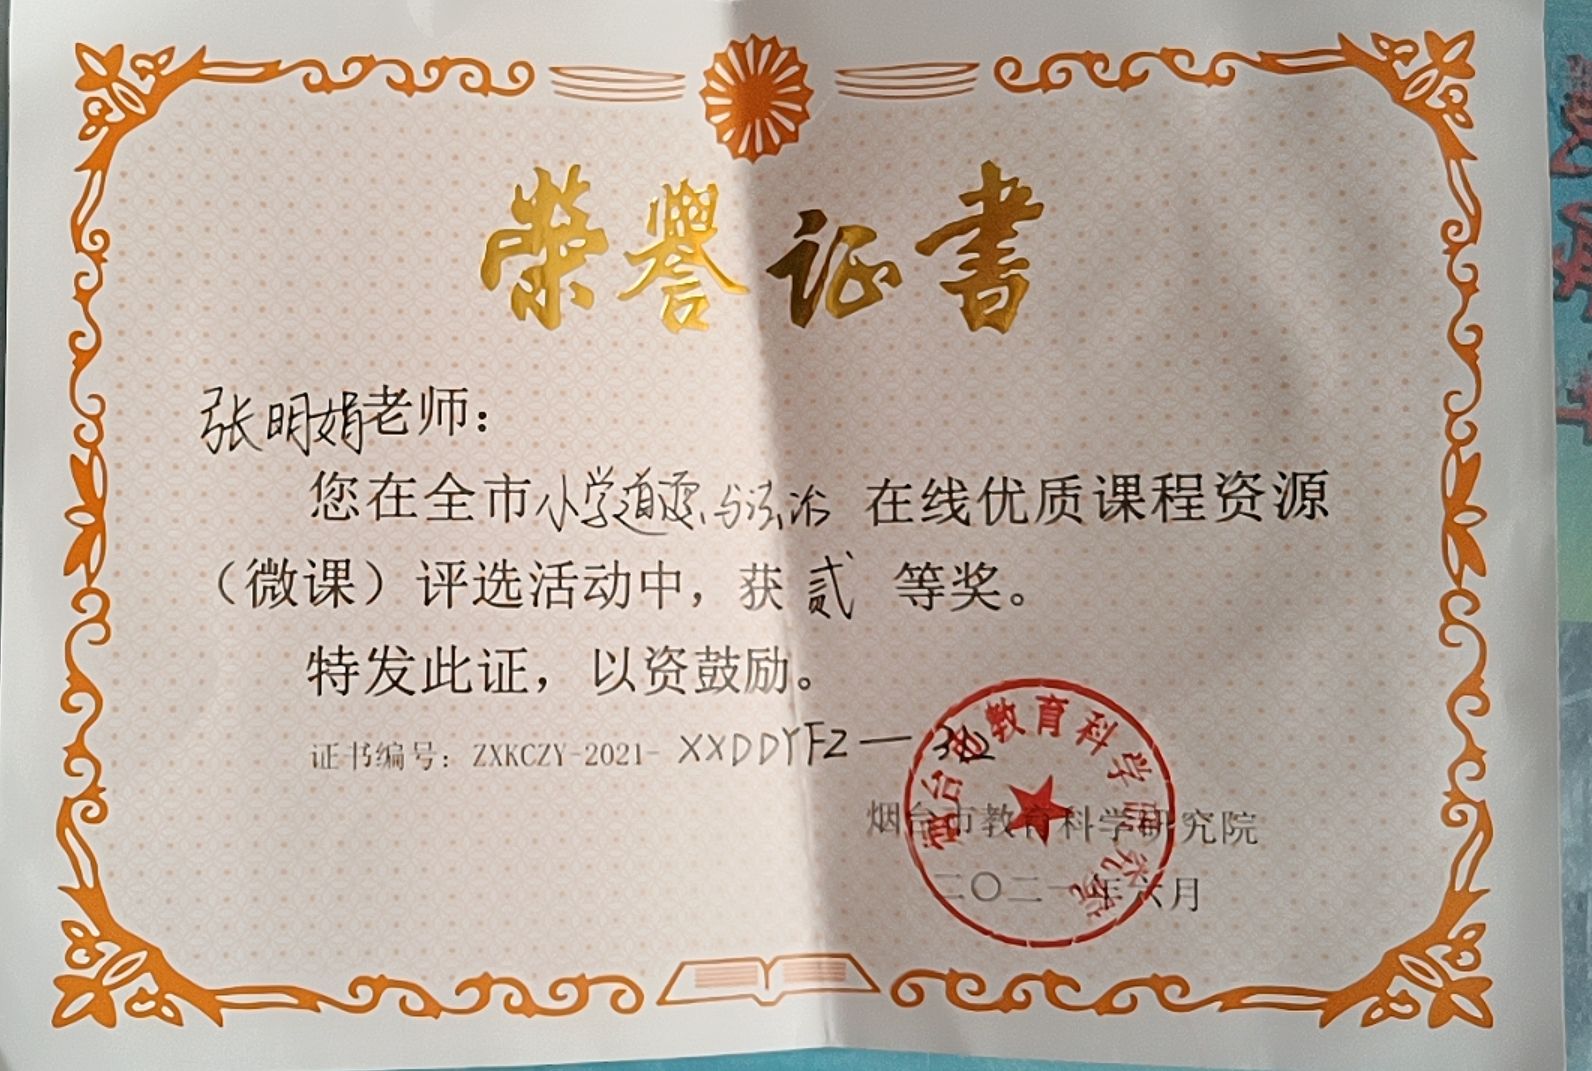 荣誉证书
张明娟老师：
您在全市小学道德与法治 在线优质课程资源
（微课）评选活动中，获 贰 等奖。
特发此证，以资鼓励。
证书编号：ZXKCZY-2021- XXDDYFZ—
烟台市教育科学研究院
烟台市教育科学研究院
二〇二一年六月